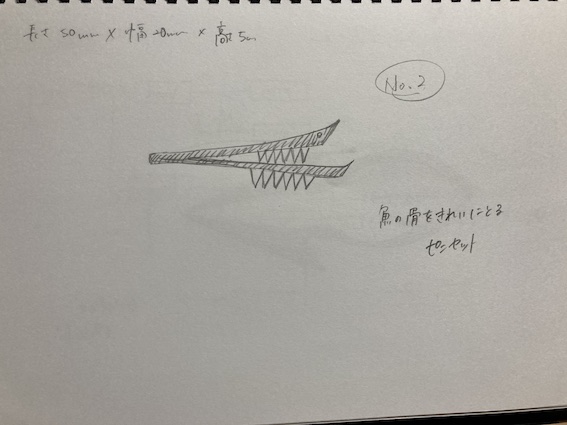 長さ50mm×幅20mm×高さ5mm
No.2
魚の骨をきれいにとる
ピンセット